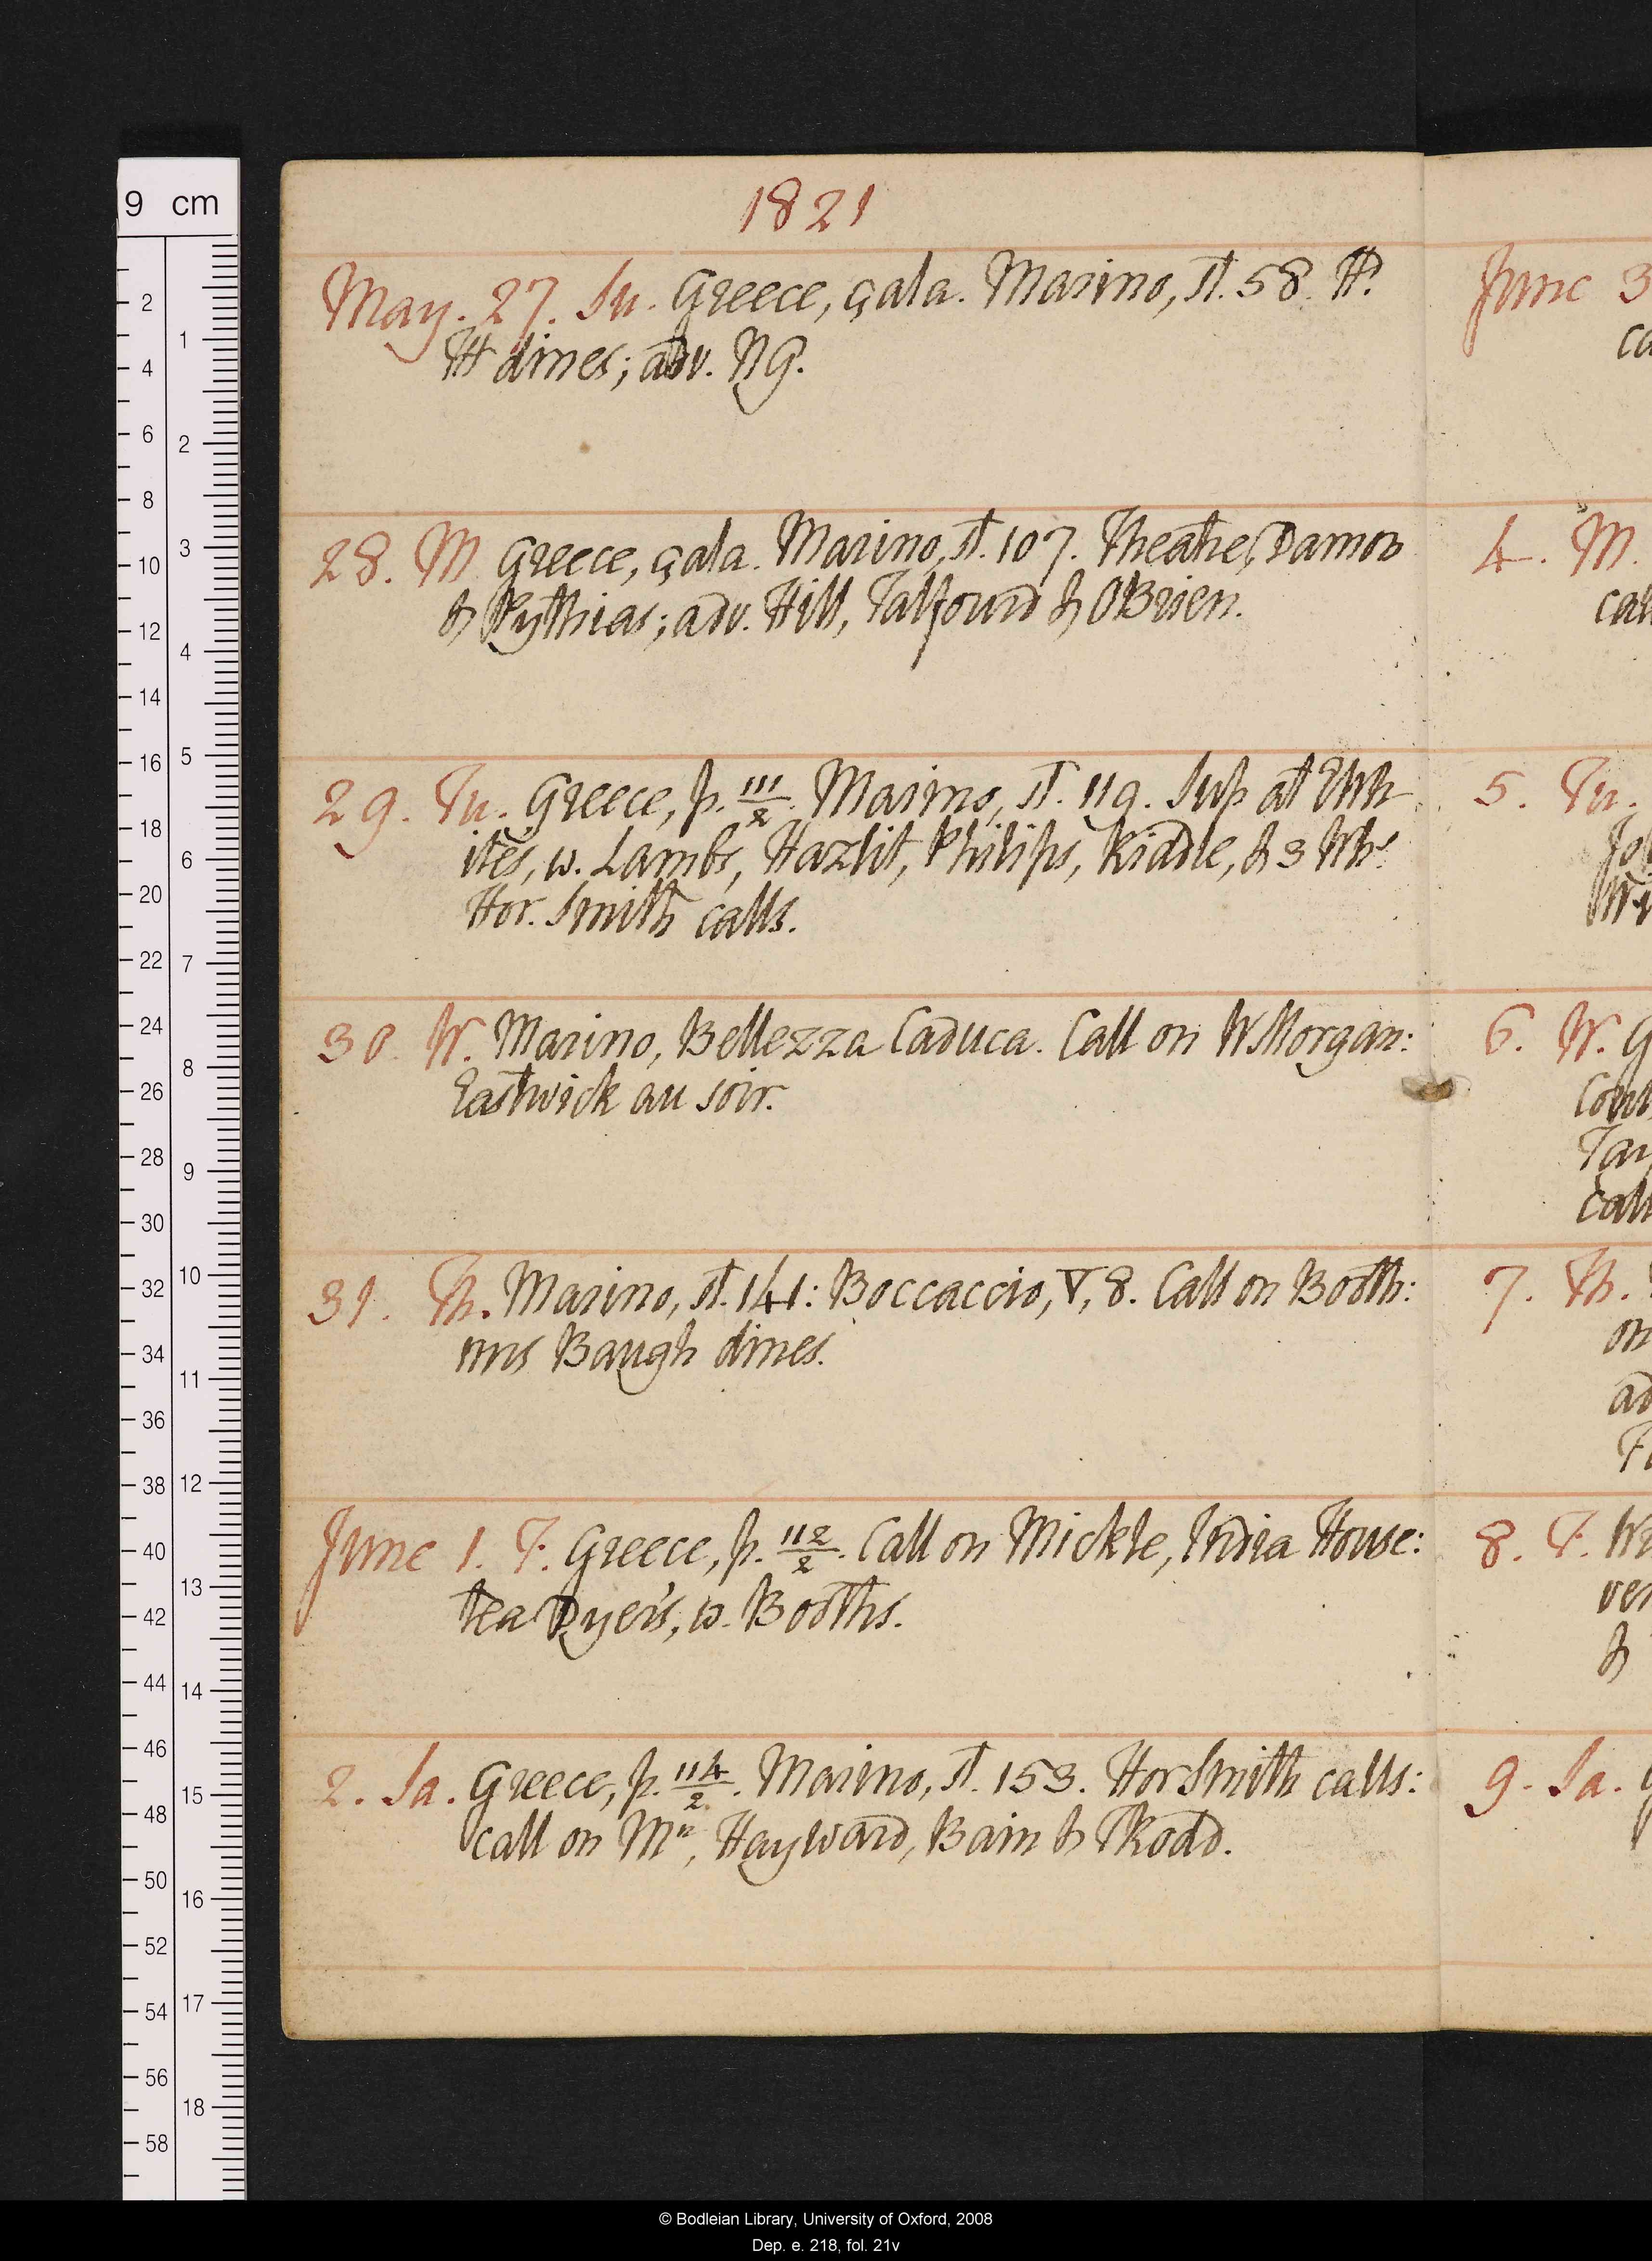 1821
May. 27. Su. Greece, çala. Marino, st. 58. H.
HH dines; adv. NG.
28. M Greece, çala. Marino, st. 107. Theatre, Damon
& Pythias; adv. Hill, Talfourd & OBrien.
29. Tu. Greece, p. 111/2. Marino, st. 119. Sup at
ites, w. Lambs, Hazlit, Philips, Riddle, & 3
Hor. Smith calls.
30. W. Marino, Bellezza Caduca. Call on W Morgan:
Eastwick au soir.
31. Th. Marino, st. 141: Boccaccio, V, 8. Call on Booth:
mrs Baugh dines.
June 1. F. Greece, p. 112/2. Call on Mickle, India House:
tea Dyer's, w. Booths.
2. Sa. Greece, p. 114/2. Marino, st. 153. Hor Smith calls:
call on Hayward, Bain & Rodd.
June 3
4. M.
5. Tu.
6. W. G
7. Th.
on
8. F.
&
9. Sa.
9 cm
© Bodleian Library, University of Oxford, 2008
Dep. e. 218, fol. 21v